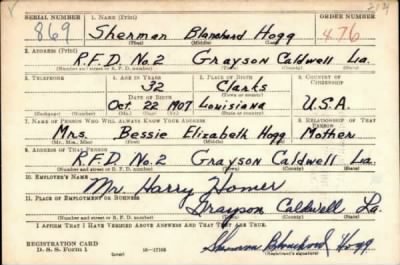 SERIAL NUMBER 1. NAME (Print) ORDER NUMBER
869 Sherman Blanchard Hogg 476
(First) (Middle) (Last)
2. ADDRESS (Print)
R.F.D. No.2 Grayson Caldwell La.
(Number and street or R. F. D. number) (Town) (County) (State)
3. TELEPHONE 4. AGE IN YEARS 5. PLACE OF BIRTH 6. COUNTRY OF CITIZENSHIP
32 Clarks
DATE OF BIRTH (Town or county)
Oct. 22 1907 Louisiana U.S.A.
(Exchange) (Number) (Mo.) (Day) (Yr.) (State or country)
7. NAME OF PERSON WHO WILL ALWAYS KNOW YOUR ADDRESS 8. RELATIONSHIP OF THAT PERSON
Mrs. Bessie Elizabeth Hogg Mother
(Mr., Mrs., Miss) (First) (Middle) (Last)
9. ADDRESS OF THAT PERSON
R.F.D. No.2 Grayson Caldwell La.
(Number and street or R. F. D. number) (Town) (County) (State)
10. EMPLOYER'S NAME
Mr Harry Homer
11. PLACE OF EMPLOYMENT OR BUSINESS
Grayson Caldwell La.
(Number and street or R. F. D. number) (Town) (County) (State)
I AFFIRM THAT I HAVE VERIFIED ABOVE ANSWERS AND THAT THEY ARE TRUE.
REGISTRATION CARD
D. S. S. Form 1 (over) 16-17105 Sherman Blanchard Hogg